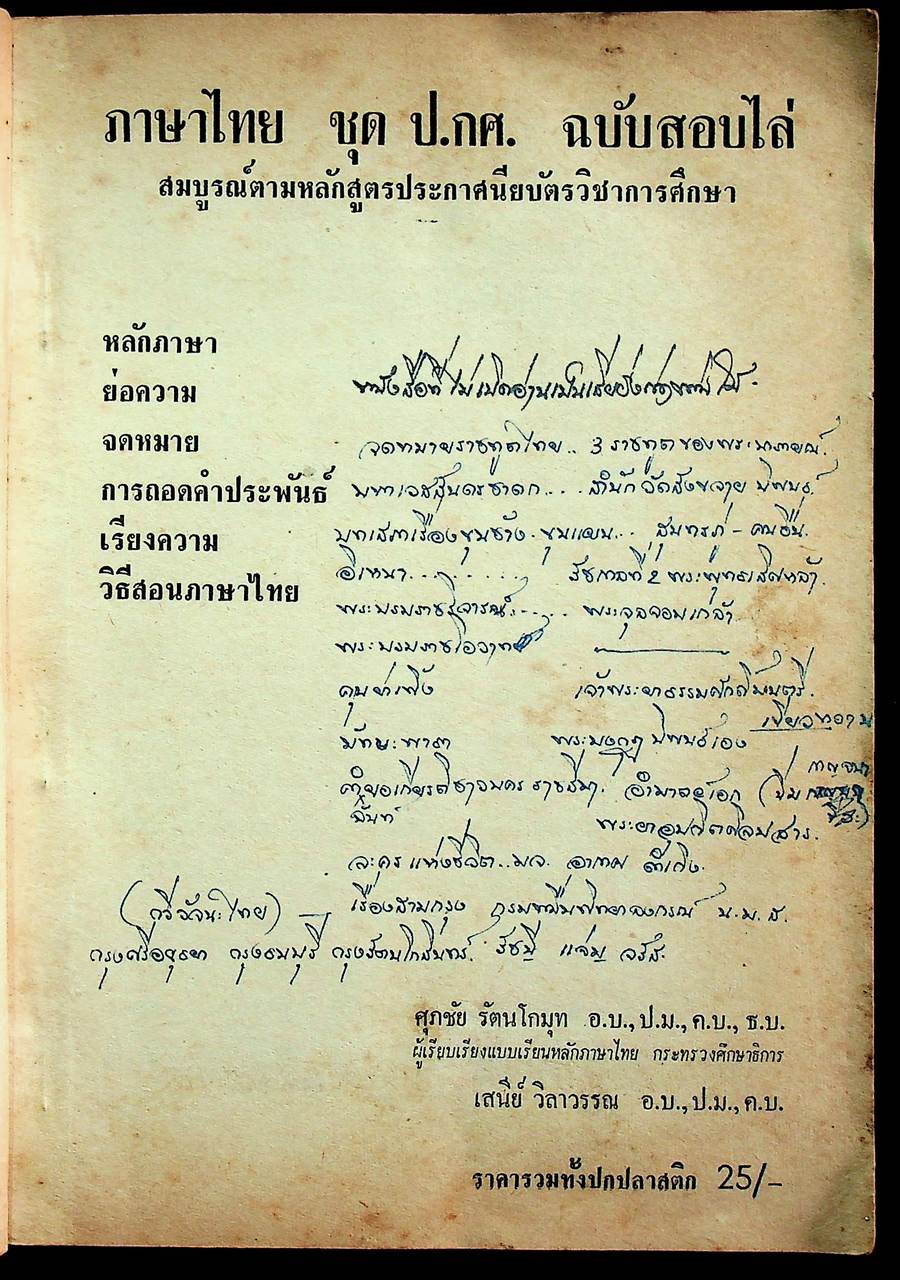 ภาษาไทย ชุด ป.กศ. ฉบับสอบไล่
สมบูรณ์ตามหลักสูตรประกาศนียบัตรวิชาการศึกษา
หลักภาษา
ย่อความ
จดหมาย
การถอดคำประพันธ์
เรียงความ
วิธีสอนภาษาไทย
หนังสือที่ไม่เปิดอ่าน
จดหมายราชทูตไทย.. 3 ราชทูตของพระนารายณ์.
มหาเวสสันดรชาดก.... สำนักวัดสังขจาย นิพนธ์.
บทเสภาเรื่องขุนช้าง-ขุนแผน... สุนทรภู่ - คนอื่น.
อิเหนา.......... รัชกาลที่ 2 พระพุทธเลิศหล้า.
พระบรมราชวิจารณ์...... พระจุลจอมเกล้า.
พระบรมราโชวาท
คุณย่าเพิ้ง เจ้าพระยาธรรมศักดิ์มนตรี.
เขียวหวาน
มัทนะพาธา พระมงกุฎ นิพนธ์เอง
คำขอเกียรติชาวนครราชสีมา. อำมาตย์เอก (
ฉันท์ พระยาอุปกิตศิลปสาร.
ละครแห่งชีวิต.. ม.จ. อากาศ ดำเกิง.
(กวีวัจนะไทย) — เรื่องสามกรุง กรมหมื่นพิทยาลงกรณ์ น.ม.ส.
กรุงศรีอยุธยา กรุงธนบุรี กรุงรัตนโกสินทร์. รัชนี แจ่ม จรัส.
ศุภชัย รัตนโกมุท อ.บ., ป.ม., ค.บ., ธ.บ.
ผู้เรียบเรียงแบบเรียนหลักภาษาไทย กระทรวงศึกษาธิการ
เสนีย์ วิลาวรรณ อ.บ., ป.ม., ค.บ.
ราคารวมทั้งปกปลาสติก 25/–